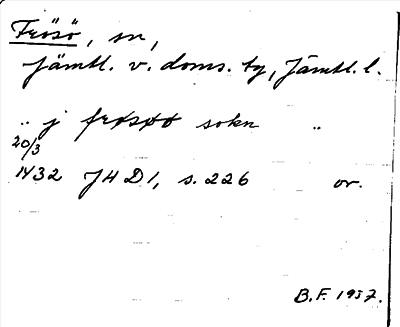 Frösö, sn,
Jämtl. v. doms. tg, Jämtl. l.
„ j frøsøø sokn „
20/3
1432 JHD 1, s. 226 or.
B.F. 1937.